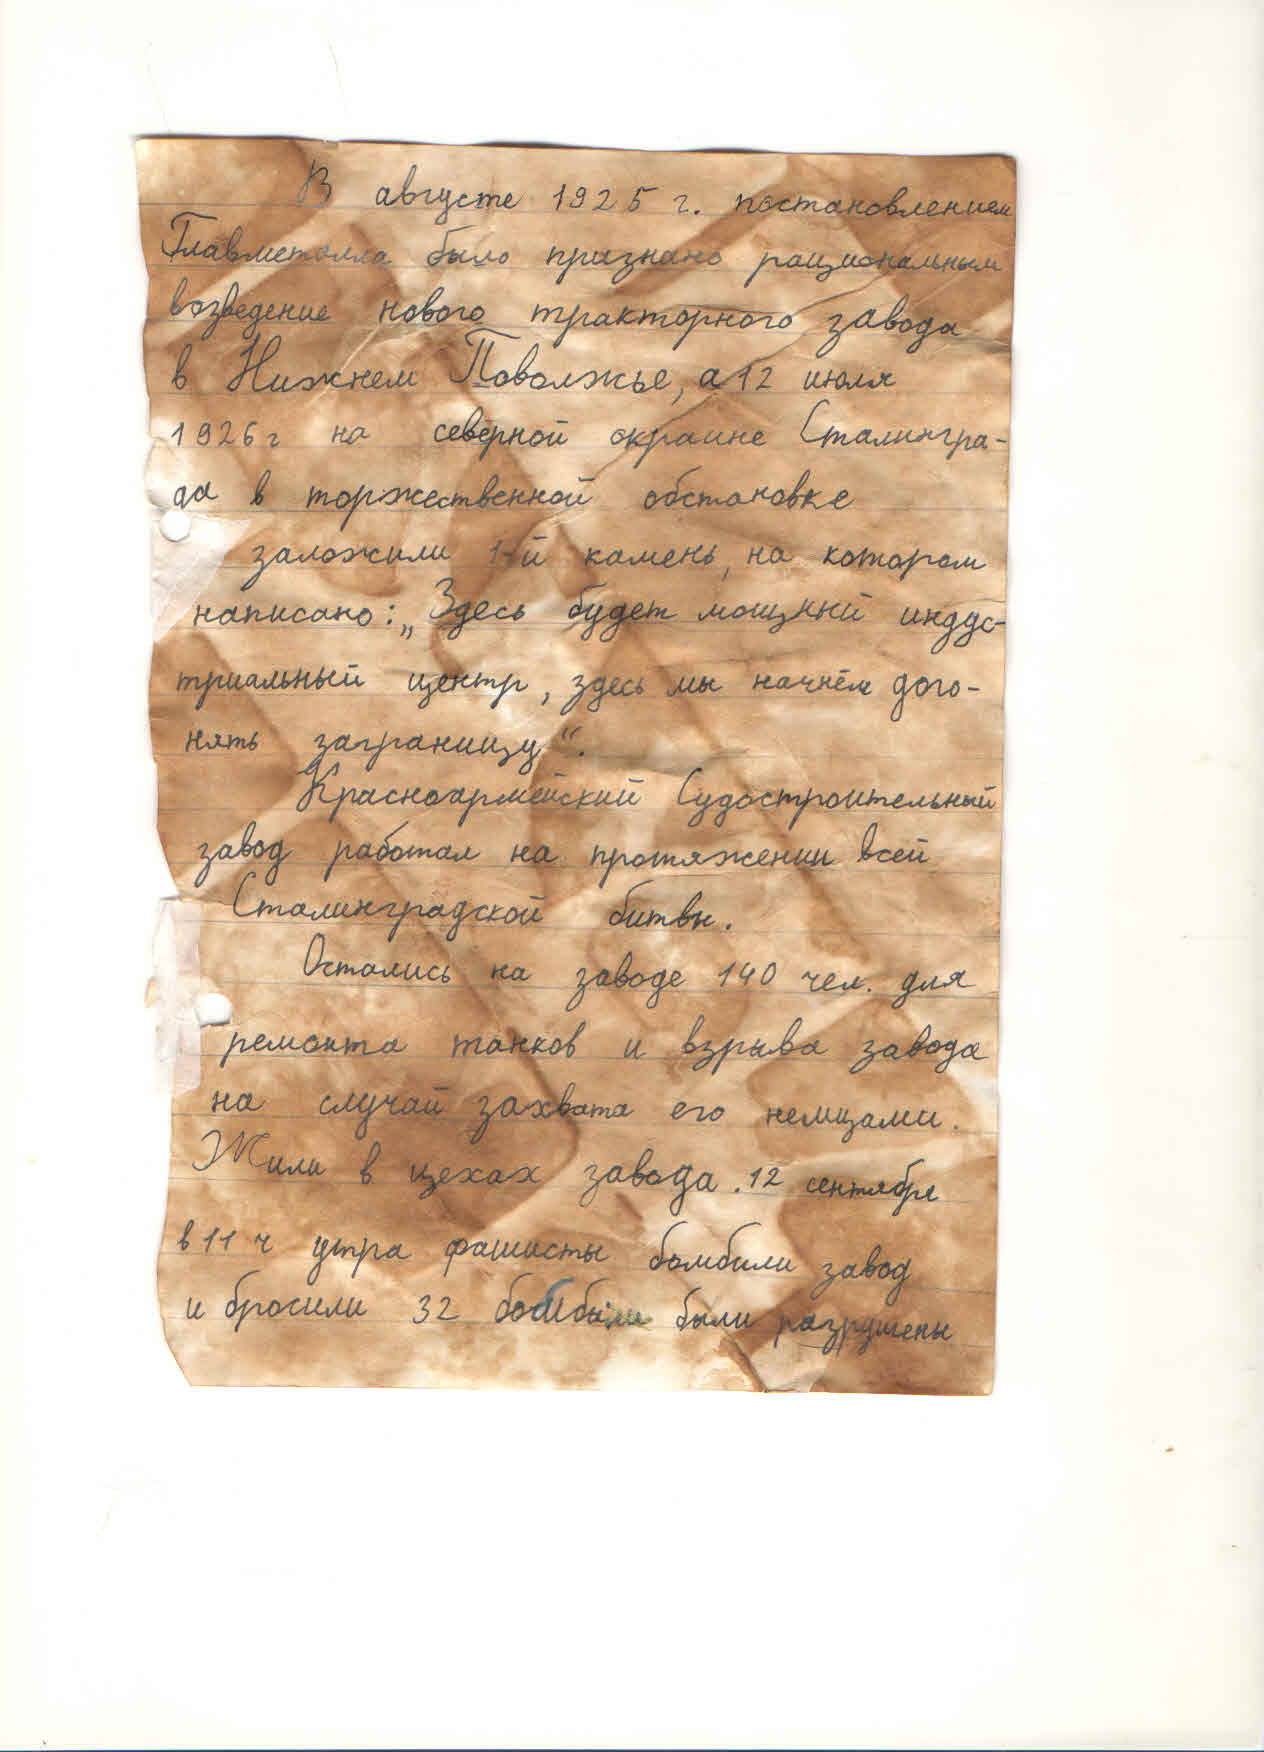 В августе 1925 г. постановлением
Главметалла было признано рациональным
возведение нового тракторного завода
в Нижнем Поволжье, а 12 июля
1926 г на северной окраине Сталингра-
да в торжественной обстановке
заложили 1-й камень, на котором
написано: „Здесь будет мощный индус-
триальный центр, здесь мы начнём дого-
нять заграницу“.
Красноармейский Судостроительный
завод работал на протяжении всей
Сталинградской битвы.
Остались на заводе 140 чел. для
ремонта танков и взрыва завода
на случай захвата его немцами.
Жили в цехах завода. 12 сентября
в 11 ч утра фашисты бомбили завод
и бросили 32 были разрушены